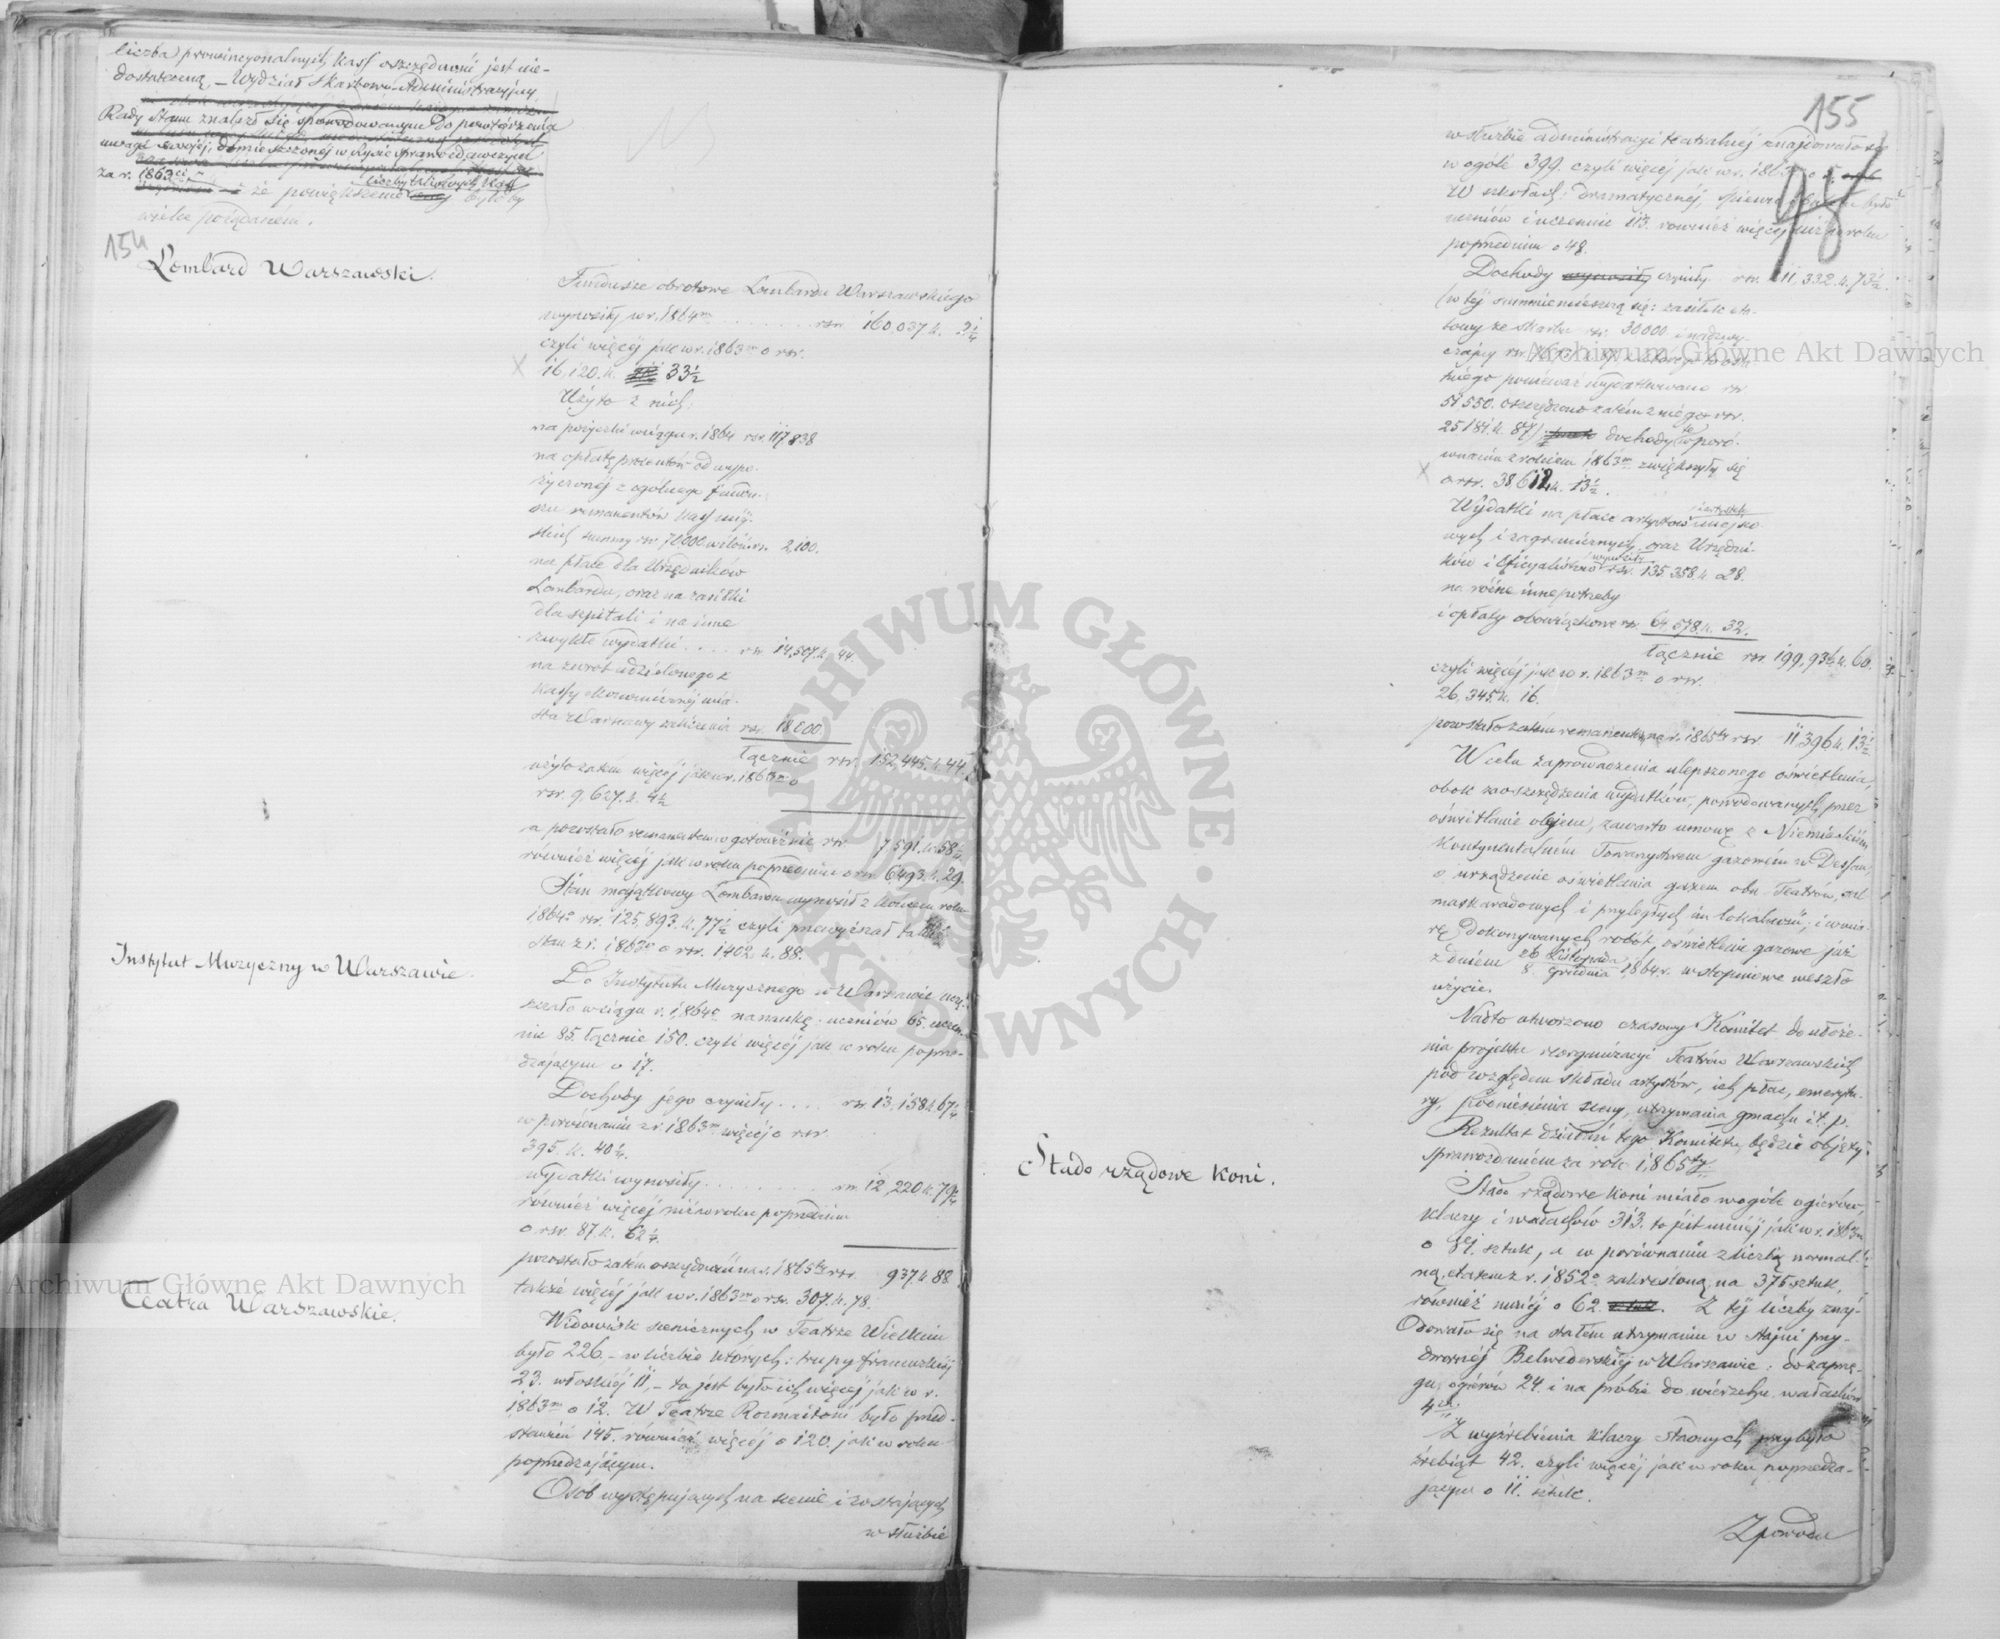 liczba prowincyonalnych Kass oszczędności jest nie-
dostateczną, – Wydział Skarbowo-Administracyjny
Rady Stanu znalazł się spowodowanym do powtórzenia
uwagi swojéj, zamieszczonéj w Rysie sprawozdawczym
za r. 1863
że powiększenie liczby takowych Kass byłoby
wielce pożądanem.
154
Lombard Warszawski.
Fundusze obrotowe Lombardu Warszawskiego
wynosiły w r. 1864m ........ rsr. 160,037 k. 2¼
czyli więcéj jak w r. 1863m o rsr.
16,120. k. 33½
Użyto z nich:
na pożyczki w ciągu r. 1864 rsr. 117,838
na opłatę procentów od wypo-
życzonéj z ogólnego fundu-
szu remanentów Kass miej-
skich summy rsr. 70,000 w ilości rs. 2,100.
na płace dla Urzędników
Lombardu, oraz na zasiłki
dla szpitali i na inne
zwykłe wydatki ..... rsr. 14,507. k. 44.
na zwrot udzielonego z
Kassy Ekonomicznéj mia-
sta Warszawy zaliczenia rsr. 18,000.
łącznie rsr. 152,445. k. 44.
użyto zatem więcéj jak w r. 1863m o
rsr. 9,627. k. 4½
a pozostało remanentem w gotowiźnie rsr. 7,591. k. 58¼
również więcéj jak w roku poprzednim o rsr. 6,493. k. 29.
Stan majątkowy Lombardu wynosił z końcem roku
1864o rsr. 125,893. k. 77½ czyli przewyższał takiż
stan z r. 1863o o rsr. 1402. k. 88.
Instytut Muzyczny w Warszawie.
Do Instytutu Muzycznego w Warszawie uczę-
szczało w ciągu r. 1864o na naukę: uczniów 65. uczen-
nic 85. łącznie 150. czyli więcéj jak w roku poprze-
dzającym o 17.
Dochody jego czyniły .... rsr. 13,158 k. 67¼
w porównaniu z r. 1863m więcéj o rsr.
395. k. 40¼.
wydatki wynosiły .......... rsr. 12,220. k. 79¼
również więcéj niż w roku poprzednim
o rsr. 87. k. 62¼.
pozostało zatém oszczędności na r. 1865ty rsr. 937. k. 88.
także więcéj jak w r. 1863m o rsr. 307. k. 78.
Teatra Warszawskie.
Widowisk scenicznych w Teatrze Wielkim
było 226. – w liczbie których: trupy francuzkiéj
23. włoskiéj 11, – to jest było ich więcéj jak w r.
1863m o 12. W Teatrze Rozmaitości było przed-
stawień 145. również więcéj o 120. jak w roku
poprzedzającym.
Osób występujących na scenie i zostających
w służbie
155
98
w służbie administracyi teatralnéj znajdowało się
w ogóle 399. czyli więcéj jak w r. 1863m o
W szkołach: dramatycznéj, śpiewu i baletu było
uczniów i uczennic 113. również więcéj niż w roku
poprzednim o 48.
Dochody wynosiły czyniły rsr. 211,332. k. 73½.
(w téj summie mieszczą się: zasiłek eta-
towy ze Skarbu rsr. 30,000 i nadzwy-
czajny rsr.
kiego ponieważ wydatkowano rsr
51,550. oszczędzono zatém z niego rsr.
25,181. k. 87) dochody te w poró-
wnaniu z rokiem 1863m zwiększyły się
o rsr. 38,612 k. 13½.
Wydatki na płace artystów i artystek miejsco-
wych i zagranicznych oraz Urzędni-
ków i Oficyalistów wynosiły rsr. 135,358. k. 28.
na różne inne potrzeby
i opłaty obowiązkowe rsr. 64,578. k. 32.
łącznie rsr. 199,936. k. 60.
czyli więcéj jak w r. 1863m o rsr.
26,345. k. 16.
pozostało zatem remanentu na r. 1865ty rsr. 11,396 k. 13½
W celu zaprowadzenia ulepszonego oświetlenia,
obok zaoszczędzenia wydatków, powodowanych przez
oświetlanie olejem, zawarto umowę z Niemieckim
Kontynentalném Towarzystwem gazowém w Dessau,
o urządzenie oświetlania gazem obu Teatrów, sal
maskaradowych i przyległych im lokalności, i w mia-
rę dokonywanych robót, oświetlenie gazowe już
z dniem 26 Listopada / 8. Grudnia 1864 r. w stopniowe weszło
użycie.
Nadto utworzono czasowy Komitet do ułoże-
nia projektu reorganizacyi Teatrów Warszawskich
pod względem składu artystów, ich płac, emerytu-
ry, podniesienia sceny, utrzymania gmachu i t. p.
Rezultat działań tego Komitetu, będzie objęty
sprawozdaniem za rok 1865ty.
Stado rządowe koni.
Stado rządowe koni miało w ogóle ogierów,
klaczy i wałachów 313. to jest mniéj jak w r. 1863m
o sztuk, a w porównaniu z liczbą normal-
ną, etatem z r. 1852o zakreśloną na 375 sztuk,
również mniéj o 62. sztuk. Z téj liczby znaj-
dowało się na stałem utrzymaniu w stajni przy-
dwornéj Belwederskiéj w Warszawie: do zaprzę-
gu, ogierów 24. i na próbie do wierzchu wałachów
4ch.
Z wyźrebienia klaczy stadnych przybyło
źrebiąt 42. czyli więcéj jak w roku poprzedza-
jącym o 11. sztuk.
Z powodu
Archiwum Główne Akt Dawnych
Archiwum Główne Akt Dawnych
ARCHIWUM GŁÓWNE · AKT DAWNYCH ·